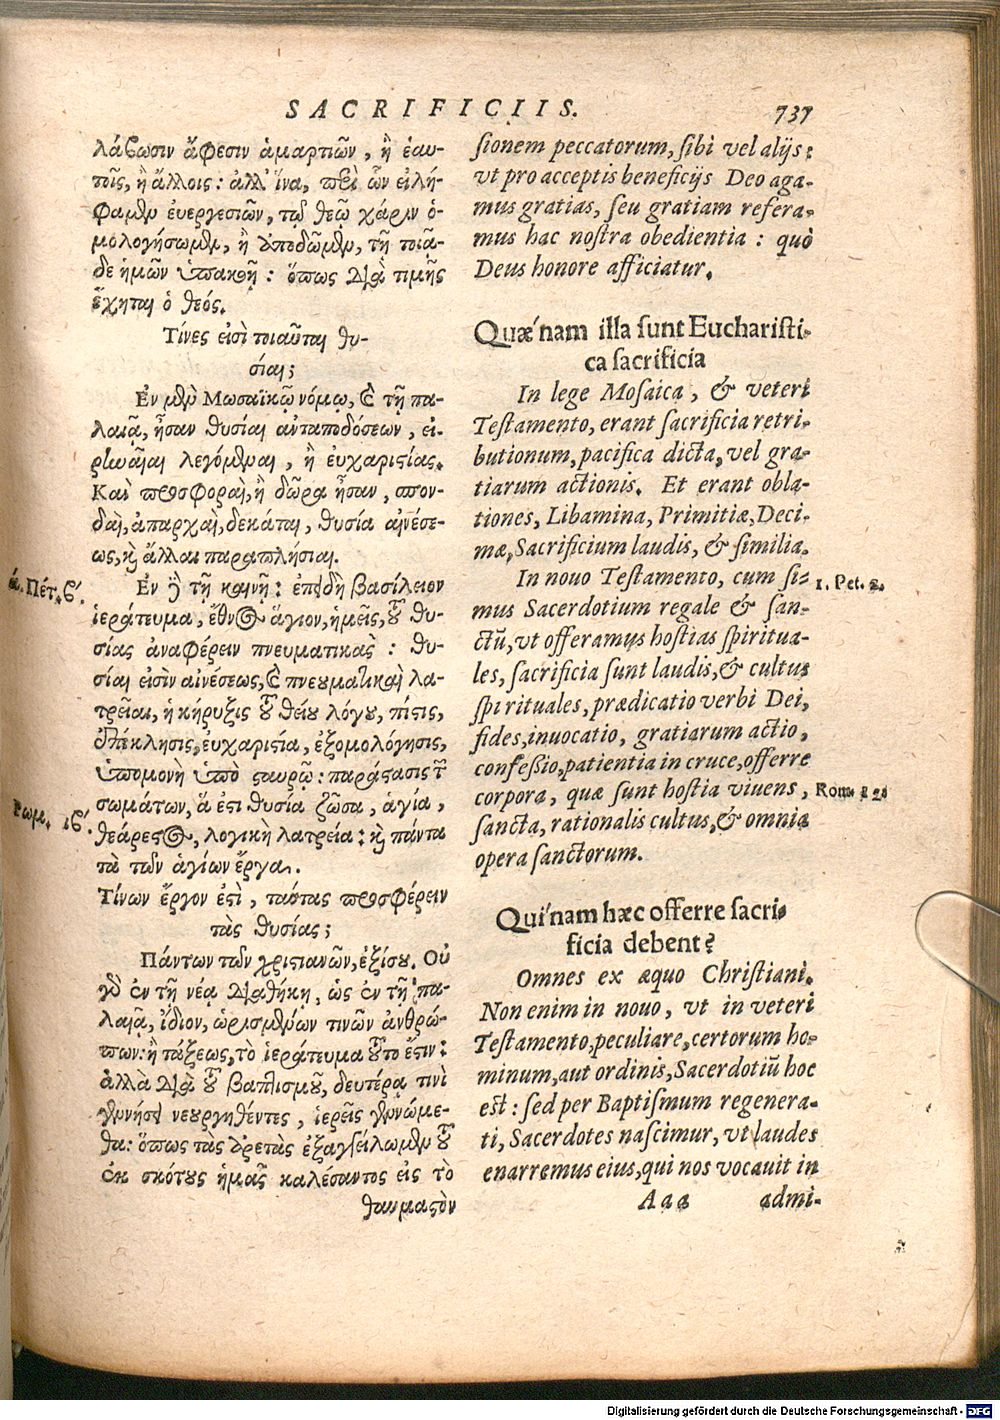 SACRIFICIIS. 737
λάβωσιν ἄφεσιν ἁμαρτιῶν, ἢ ἑαυ-
τοῖς, ἢ ἄλλοις: ἀλλ' ἵνα, περὶ ὧν εἰλή-
φαμεν εὐεργεσιῶν, τῷ θεῷ χάριν ὁ-
μολογήσωμεν, ἢ ἀποδῶμεν, τῇ τοιᾷ-
δε ἡμῶν ὑπακοῇ: ὅπως διὰ τιμῆς
ἔχηται ὁ θεός.
Τίνες εἰσὶ τοιαῦται θυ-
σίαι;
Ἐν μὲν Μωσαϊκῷ νόμῳ, καὶ τῇ πα-
λαιᾷ, ἦσαν θυσίαι ἀνταποδόσεων, εἰ-
ρηναῖαι λεγόμεναι, ἢ εὐχαριστίας.
Καὶ προσφοραὶ, ἢ δῶρα ἦσαν, σπον-
δαὶ, ἀπαρχαὶ, δεκάται, θυσία αἰνέσε-
ως, καὶ ἄλλαι παραπλήσιαι.
Ἐν δὲ τῇ καινῇ: ἐπειδὴ βασίλειον
ἱεράτευμα, ἔθνος ἅγιον, ἡμεῖς, τοῦ θυ-
σίας ἀναφέρειν πνευματικάς: θυ-
σίαι εἰσὶν αἰνέσεως, καὶ πνευματικαὶ λα-
τρεῖαι, ἡ κήρυξις τοῦ θείου λόγου, πίστις,
ἐπίκλησις, εὐχαριστία, ἐξομολόγησις,
ὑπομονὴ ὑπὸ σταυρῷ: παράστασις τῶν
σωμάτων, ἅ ἐστι θυσία ζῶσα, ἁγία,
θεάρεστος, λογικὴ λατρεία: καὶ πάντα
τὰ τῶν ἁγίων ἔργα.
Τίνων ἔργον ἐστὶ, ταύτας προσφέρειν
τὰς θυσίας;
Πάντων τῶν χριστιανῶν, ἐξίσου. Οὐ
γὰρ ἐν τῇ νέᾳ διαθήκῃ, ὡς ἐν τῇ πα-
λαιᾷ, ἴδιον, ὡρισμένων τινῶν ἀνθρώ-
πων: ἢ τάξεως, τὸ ἱεράτευμα τοῦτο ἔστιν:
ἀλλὰ διὰ τοῦ βαπτισμοῦ, δευτέρᾳ τινὶ
γεννήσει νεουργηθέντες, ἱερεῖς γενώμε-
θα: ὅπως τὰς ἀρετὰς ἐξαγγείλωμεν τοῦ
ἐκ σκότους ἡμᾶς καλέσαντος εἰς τὸ
θαυμαστὸν
ά. Πέτ. β΄.
Ρωμ. ιβ΄.
sionem peccatorum, sibi vel alijs:
vt pro acceptis beneficijs Deo aga-
mus gratias, seu gratiam refera-
mus hac nostra obedientia: quò
Deus honore afficiatur.
Quæ'nam illa sunt Eucharisti-
ca sacrificia
In lege Mosaica, & veteri
Testamento, erant sacrificia retri-
butionum, pacifica dicta, vel gra-
tiarum actionis. Et erant obla-
tiones, Libamina, Primitiæ, Deci-
mæ, Sacrificium laudis, & similia.
In nouo Testamento, cum si-
mus Sacerdotium regale & san-
ctũ, vt offeramus hostias spiritua-
les, sacrificia sunt laudis, & cultus
spirituales, prædicatio verbi Dei,
fides, inuocatio, gratiarum actio,
confeßio, patientia in cruce, offerre
corpora, quæ sunt hostia viuens,
sancta, rationalis cultus, & omnia
opera sanctorum.
Qui'nam hæc offerre sacri-
ficia debent?
Omnes ex æquo Christiani.
Non enim in nouo, vt in veteri
Testamento, peculiare, certorum ho-
minum, aut ordinis, Sacerdotiũ hoc
est: sed per Baptismum regenera-
ti, Sacerdotes nascimur, vt laudes
enarremus eius, qui nos vocauit in
Aaa admi-
1. Pet. 2.
Rom. 12.
Digitalisierung gefördert durch die Deutsche Forschungsgemeinschaft - DFG